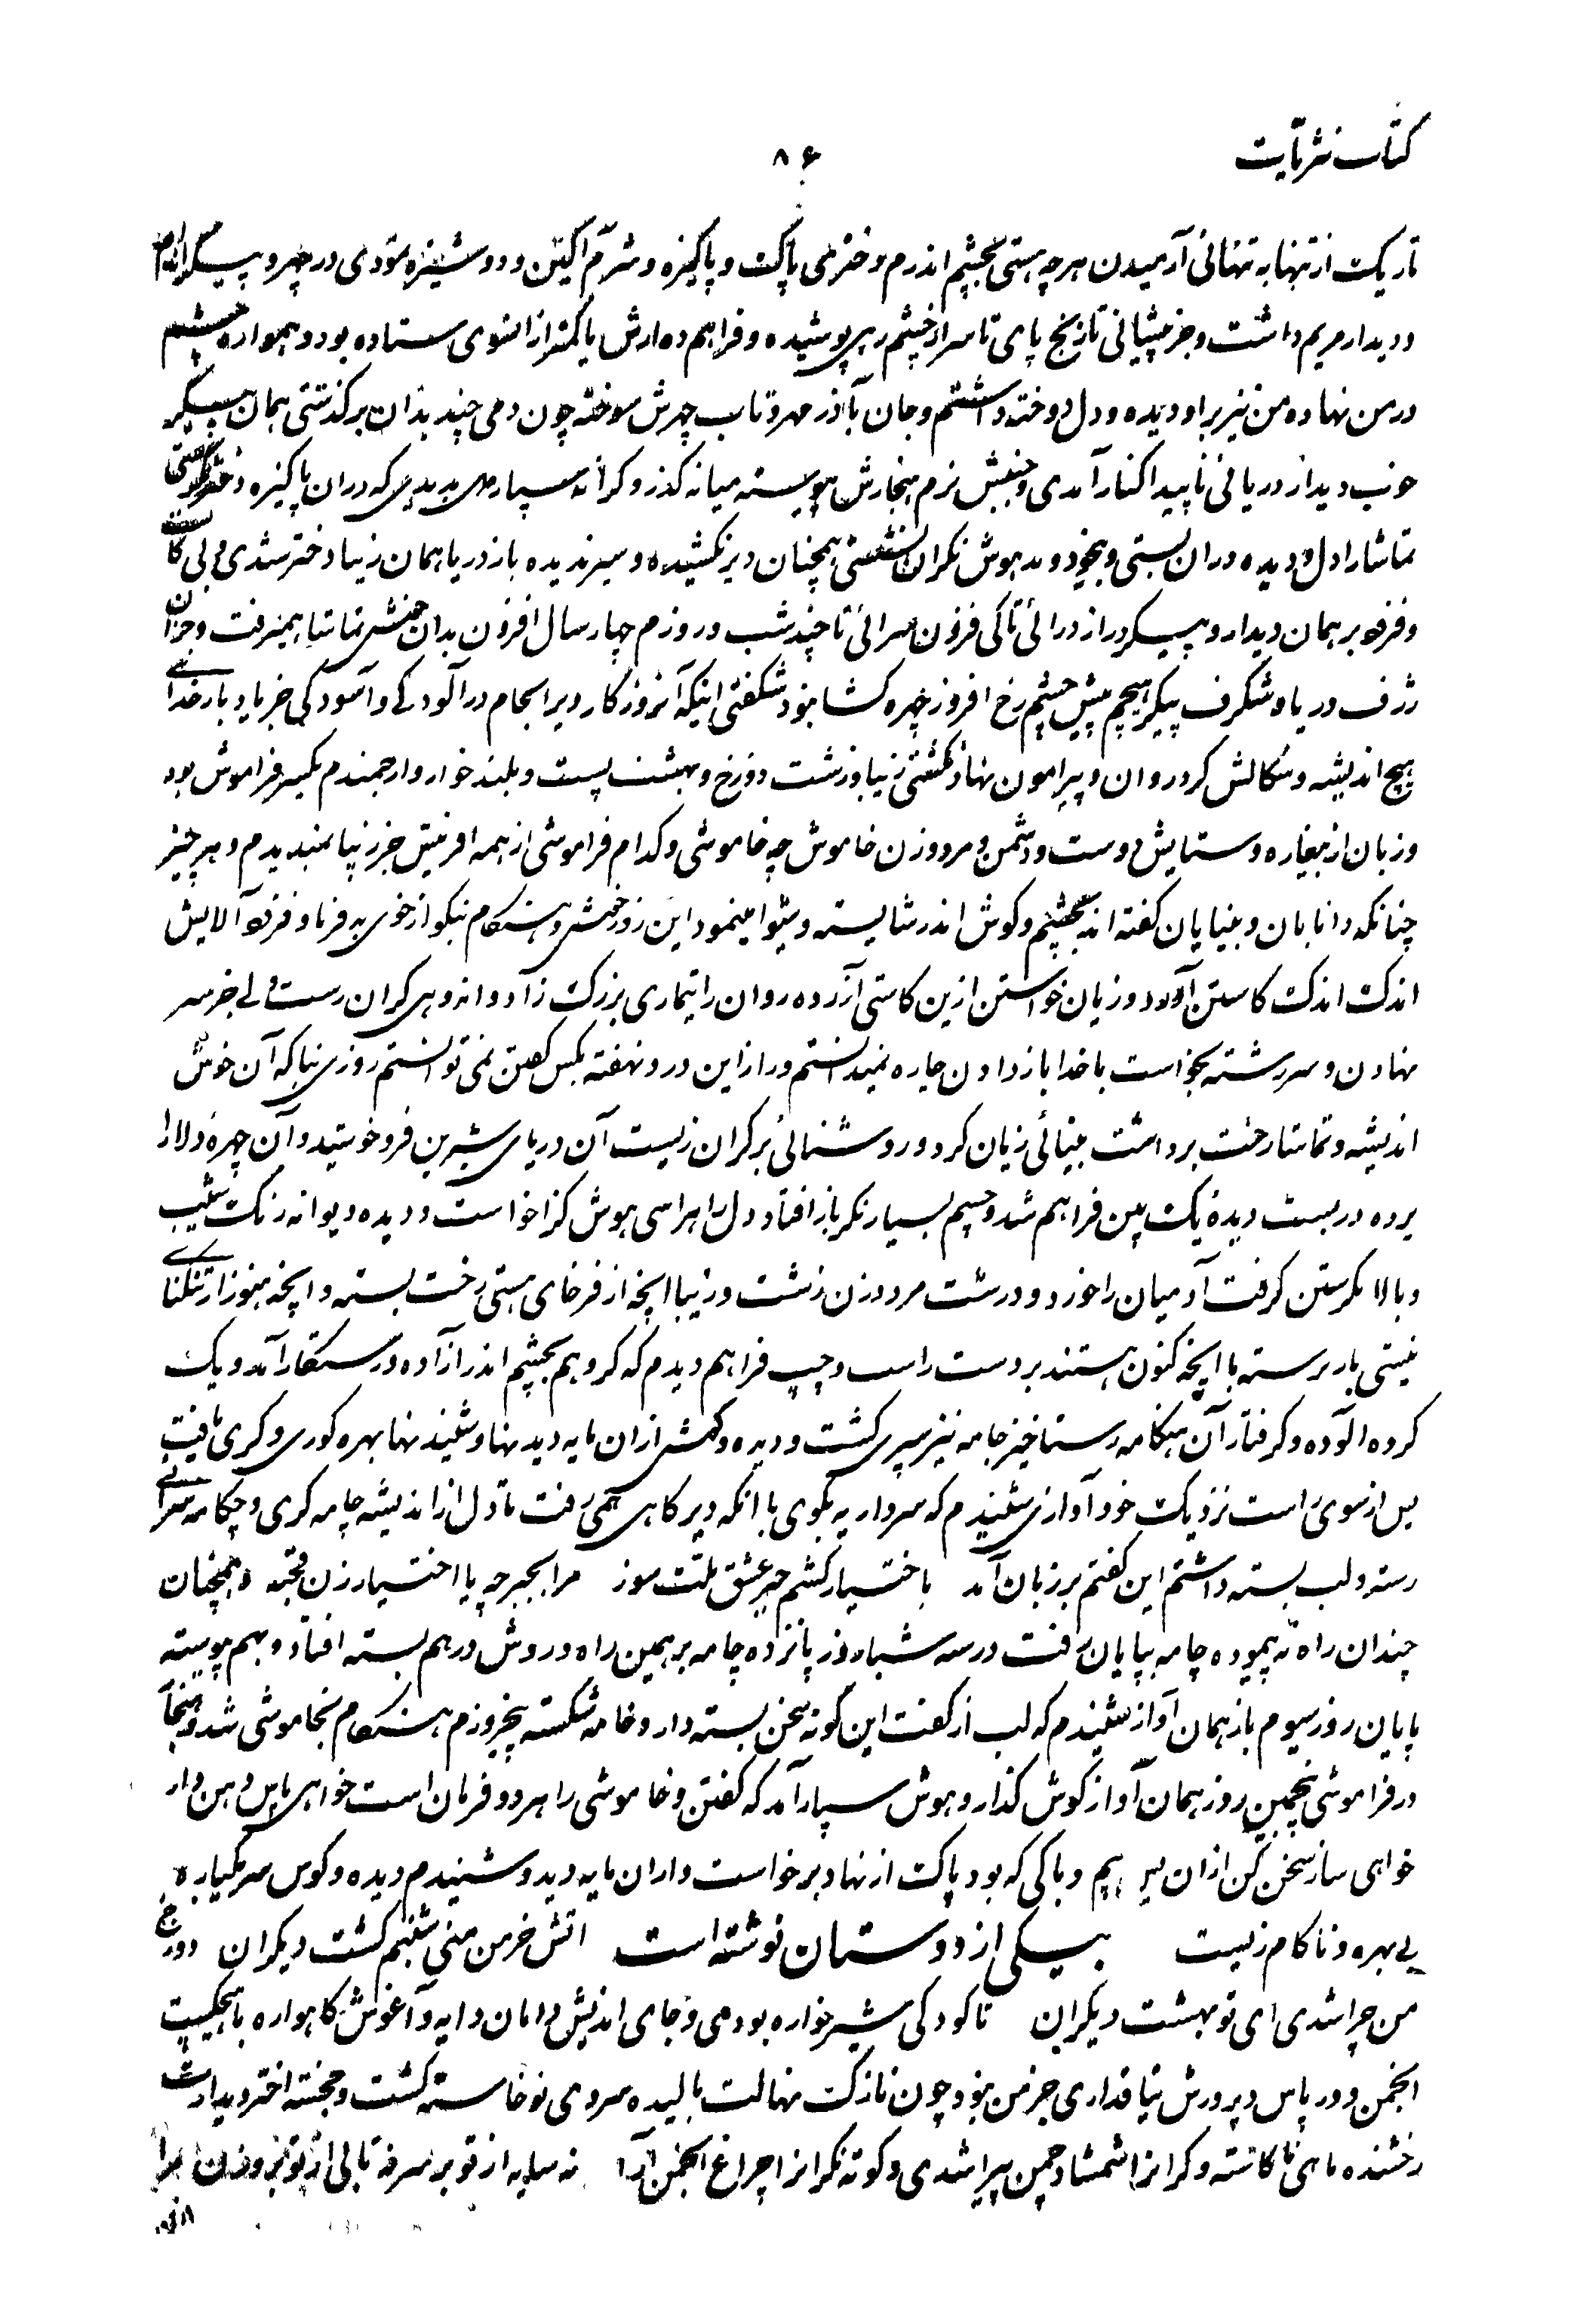 کتاب نثریات
۸۶
تاریک از تنها به تنهائی آرمیدن هرچه هستی بچشم اندرم دختری پاک و پاکیزه و شرم آگین و دوشیزه بودی در چهر و پیکر
و دیدار مریم داشت و جز پیشانی تا زنخ پای تا سر از چشم رهی پوشیده و فراهم ده ارش یا کمتر از انسوی ستاده بود و همواره چشم
در من نهاده من نیز بر او دیده و دل دوخته داشتم و جان با آذر مهر و تاب چهرش سوخته چون دمی چند بدان برگذشتی همان پیکر
خوب دیدار دریائی ناپیدا کنار آمدی و جنبش نرم هنجارش پیوسته میانه گذر و کرانه سپار می بدیدی که دران پاکیزه دختر
تماشا را دل و دیده دران بستی و بیخود و مدهوش نگران نشستی همچنان دیر نکشیده و سیر ندیده باز دریا همان زیبا دختر شدی و بی کاست
و فزود بر همان دیدار و پیکر دراز درائی تا کی فزون سرائی تا چند شب و روزم چهار سال افزون بدان تماشا همیرفت و جز آن
ژرف دریا و شگرف پیکر هیچم پیش چشم رخ افروز و چهره گشا نبود شگفتی اینکه آنروزگار دیر انجام در آلودگی و آسودگی جز یاد بار خدای
هیچ اندیشه و سگالش گرد روان و پیرامون نهاد نگشتی زیبا و زشت دوزخ و بهشت پست و بلند خوار و ارجمندم یکسر فراموش بود
و زبان از بیغاره و ستایش دوست و دشمن و مرد و زن خاموش چه خاموشی و کدام فراموشی از همه آفرینش جز زیبا نمیدیدم و هر چیز
چنانکه دانایان و بینایان گفته اند بچشم و گوش اندر شایسته و شیوا مینمود این روز خوش و هنگام نیکو از خوی بد فرما و فزود آلایش
اندک اندک کاستن آورد و زیان خواستن ازین کاستی آزرده روان را تیماری بزرگ زاد و اندوهی گران رست ولی جز سر
نهادن و سررشته بخواست با خدا بازدادن چاره نمیدانستم و راز این درد نهفته بکس گفتن نمی توانستم روزی نپا که آن خوش
اندیشه و تماشا رخت برداشت بینائی زیان کرد و روشنائی بر کران زیست آن دریای شیرین فرو خوشید و آن چهره دلارا
پرده در بست دیده یک بین فراهم شد و چشم بسیار نگر باز افتاد دل را هراسی هوش گزا خواست و دیده دیوانه رنگ شیب
و بالا نگرستن گرفت آدمیان را خورد و درشت مرد و زن زشت و زیبا انچه از فرخای هستی رخت بسته و انچه هنوز از تنگنای
نیستی بار برسته با انچه کنون هستند بر دست راست و چپ فراهم دیدم که گروهم بچشم اندر آزاده و رستگار آمد و یک
گروه آلوده و گرفتار آن هنگامه رستاخیز جامه نیز سپری گشت و دیده و گوش ازان مایه دیدنها و شنیدنها بهره کوری و کری یافت
پس از سوی راست نزدیک خود آوازی شنیدم که سرداریه بگوی با آنکه دیرگاهی همی رفت تا دل از اندیشه چامه گری و چکامه سرائی
رسته و لب بسته داشتم این گفتم بر زبان آمد باختیار کشم جبر عشق ملت سوز مرا بجبر چه با اختیار زن قحبه و همچنان
چندان راه نه پیموده چامه بپایان رفت در سه شباه روز پانزده چامه بر همین راه و روش درهم بسته افتاد و بهم پیوسته
پایان روز سیوم باز همان آواز شنیدم که لب از گفت این گونه سخن بسته دار و خامه شکسته پنج روزم هنگام بخاموشی شد و هنجار
در فراموشی پنجمین روز همان آواز گوش گذار و هوش سپار آمد که گفتن و خاموشی را هر دو فرمان است خواهی پاس دهن دار
خواهی ساز سخن کن ازان پس بیم و باکی که بود پاک از نهاد برخواست و ازان مایه دید و شنیدم دیده و گوش سر یکباره
بی بهره و ناکام زیست بیکی از دوستان نوشته است آتش خرمن منی شبنم کشت دیگران دوزخ
من چرا شدی ای تو بهشت دیگران تا کودکی شیرخواره بودمی و جای اندیش دامان دایه و آغوش گاهواره با هیچکست
انجمن و در پاس و پرورش نیافداری جز من نبود چون نازک نهالت بالیده سروی نوخاسته گشت و خجسته اختر دیدارت
رخشنده ماهی ناکاسته و گرانرا شمشاد چمن پیرا شدی و کوته نگرانرا چراغ انجمن آرا نه سایه از تو بر سر نه تابی از تو بروزن مرا